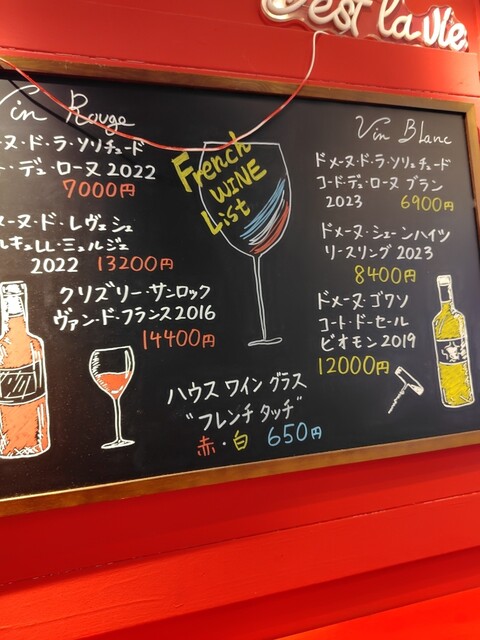 C'est la vie.
Vin Rouge
ーヌ・ド・ラ・ソリチュード
ト・デュ・ローヌ 2022
7000円
ーヌ・ド・レヴェシェ
ルキュレ・ミュルジェ
2022 13200円
クリズリー・サンロック
ヴァン・ド・フランス2016
14400円
French
WINE
List
Vin Blanc
ドメーヌ・ド・ラ・ソリュチュード
コード・デュ・ローヌ ブラン
2023 6900円
ドメーヌ・シェーンハイツ
リースリング 2023
8400円
ドメーヌ・ゴワソ
コート・ドーセール
ビオモン2019
12000円
ハウス ワイン グラス
"フレンチ タッチ"
赤・白 650円